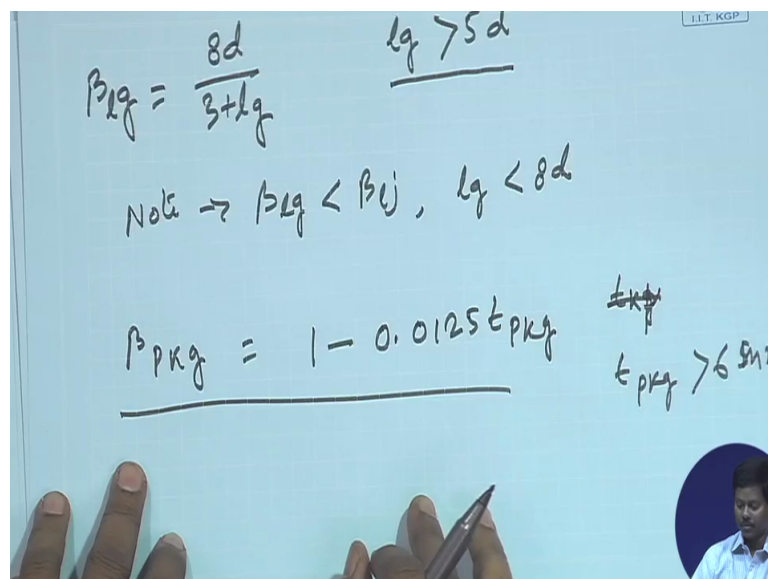 I.I.T. KGP
βlg = 8d / 3+lg    lg > 5d
Note → βlg < βlj, lg < 8d
tkp
βpkg = 1 - 0.0125 tpkg
tpkg > 6 mm